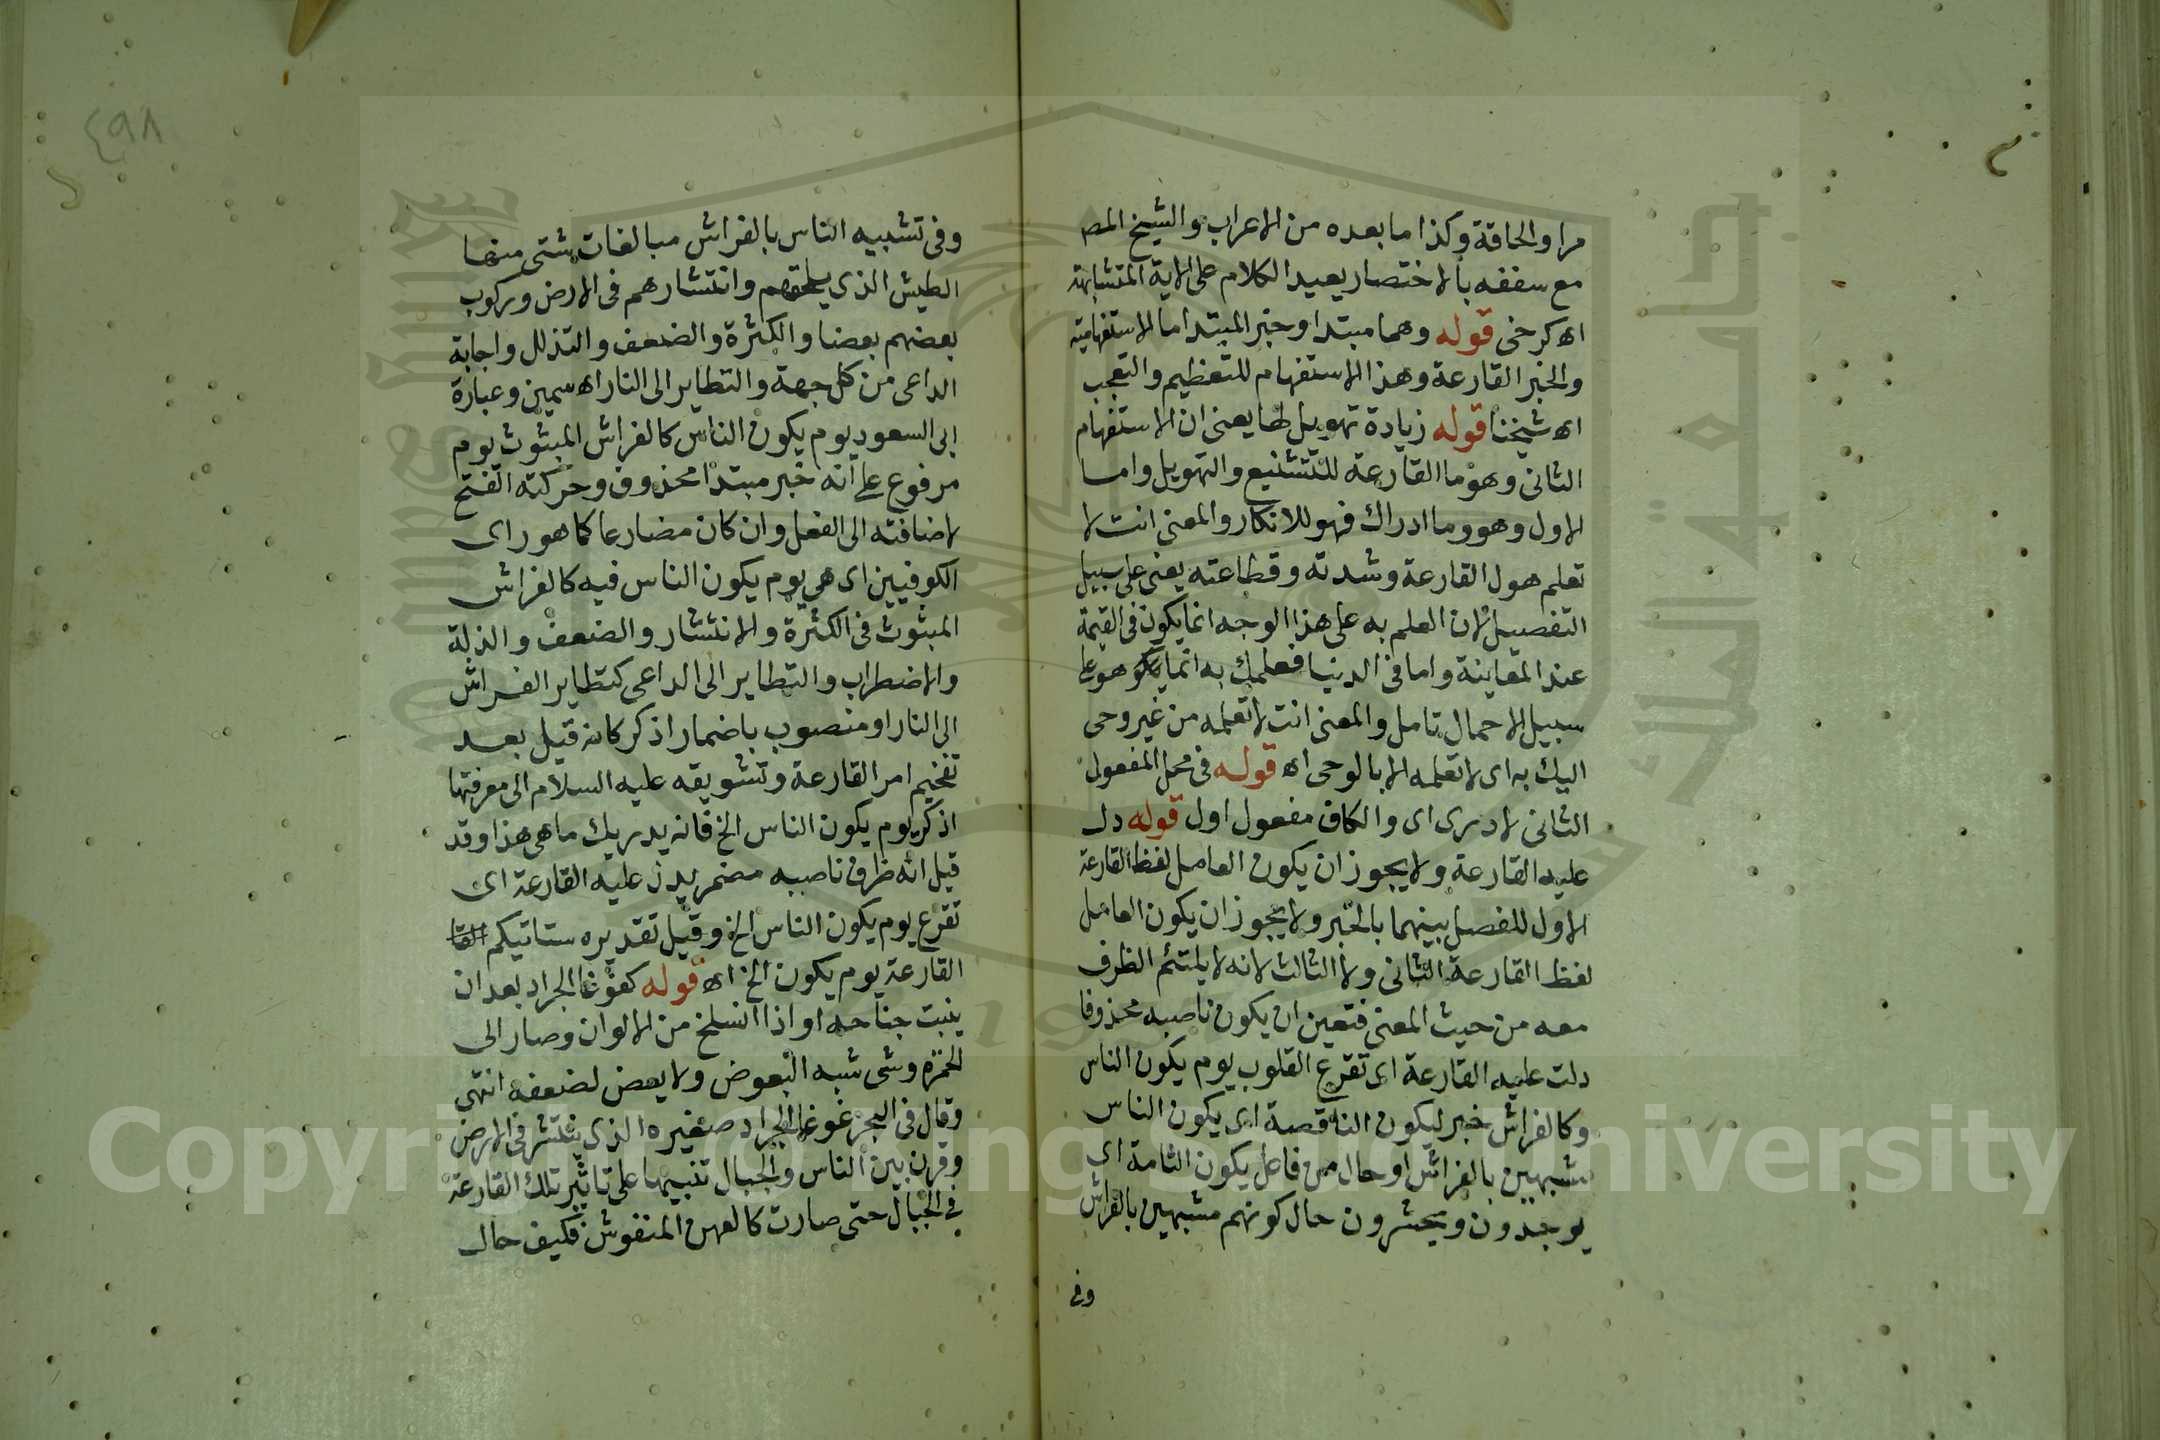 مرا والحاقة وكذا ما بعده من الاعراب والشيخ المص
مع سغفه بالاختصار يعيد الكلام على الاية المتشابهة
اه كرخى قوله وهما مبتدا وخبر المبتدا ما الاستفهامية
والخبر القارعة وهذا الاستفهام للتعظيم والتعجب
اه شيخنا قوله زيادة تهويل لها يعنى ان الاستفهام
الثانى وهو ما القارعة للتشنيع والتهويل واما
الاول وهو وما ادراك فهو للانكار والمعنى انت لا
تعلم هول القارعة وشدته وقطاعته يعنى على سبيل
التفصيل لان العلم به على هذا الوجه انما يكون فى القيمة
عند المعاينة واما فى الدنيا فعلمك به انما هو على
سبيل الاجمال تامل والمعنى انت لا تعلمه من غير وحى
اليك به اى لا تعلمه الا بالوحى اه قوله فى محل المفعول
الثانى لادرى اى والكاف مفعول اول قوله دل
عليه القارعة ولا يجوز ان يكون العامل لفظ القارعة
الاول للفصل بينهما بالخبر ولا يجوز ان يكون العامل
لفظ القارعة الثانى ولا الثالث لانه لا يلتئم الظرف
معه من حيث المعنى فتعين ان يكون ناصبه محذوفا
دلت عليه القارعة اى تقرع القلوب يوم يكون الناس
وكالفراش خبر ليكون الناقصة اى يكون الناس
مشبهين بالفراش او حال من فاعل يكون التامة اى
يوجدون ويحشرون حال كونهم مشبهين بالفراش
وفى
٤٩٨
وفى تشبيه الناس بالفراش مبالغات شتى منها
الطيش الذى يلحقهم وانتشارهم فى الارض وركوب
بعضهم بعضا والكثرة والضعف والتذلل واجابة
الداعى من كل جهة والتطاير الى النار اه سمين وعبارة
ابى السعود يوم يكون الناس كالفراش المبثوث يوم
مرفوع على انه خبر مبتدا محذوف وحركته الفتح
لاضافته الى الفعل وان كان مضارعا كما هو راى
الكوفيين اى هى يوم يكون الناس فيه كالفراش
المبثوث فى الكثرة والانتشار والضعف والذلة
والاضطراب والتطاير الى الداعى كتطاير الفراش
الى النار او منصوب باضمار اذكر كانه قيل بعد
تفخيم امر القارعة وتشويقه عليه السلام الى معرفتها
اذكر يوم يكون الناس الخ فانه يدريك ما هى هذا وقد
قيل انه ظرف ناصبه مضمر يدل عليه القارعة اى
تقرع يوم يكون الناس الخ وقيل تقديره ستاتيكم القا
القارعة يوم يكون الخ اه قوله كغوغا الجراد بعد ان
ينبت جناحه او اذا انسلخ من الالوان وصار الى
الحمرة وشى شبه البعوض ولا يعض لضعفه انتهى
وقال فى البحر غوغا الجراد صغيره الذى ينتشر فى الارض
وقرن بين الناس والجبال تنبيها على تاثير تلك القارعة
فى الجبال حتى صارت كالعهن المنفوش فكيف حال
Copyright © King Saud University
جامعة الملك سعود
1957